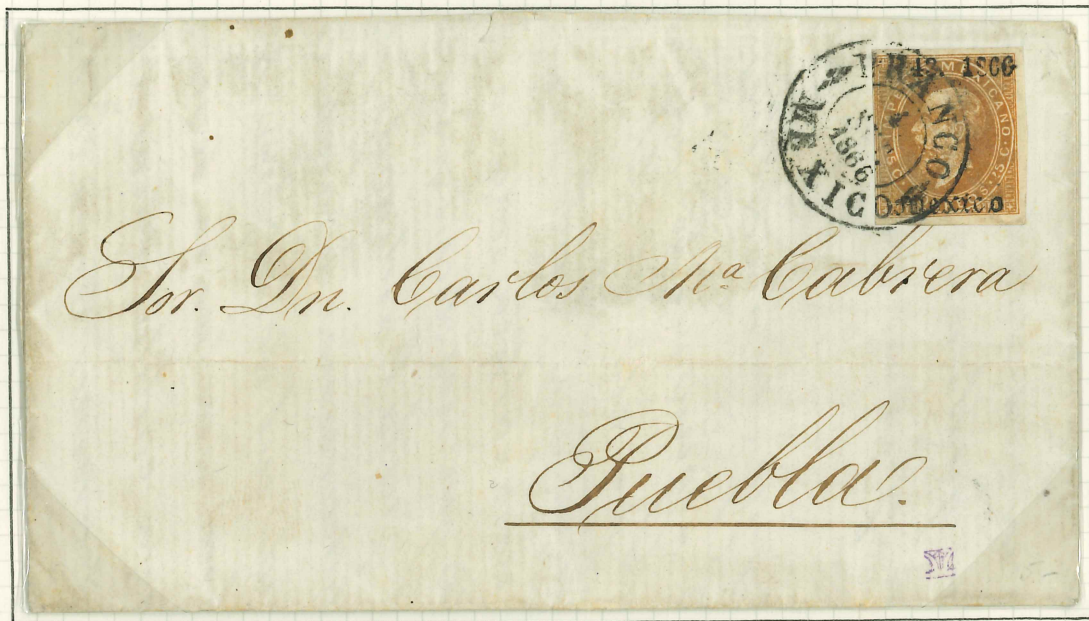 FRANCO
MEXICO
1866
42. 1866
Mexico
Sor. Dn. Carlos Ma Cabrera
Puebla.